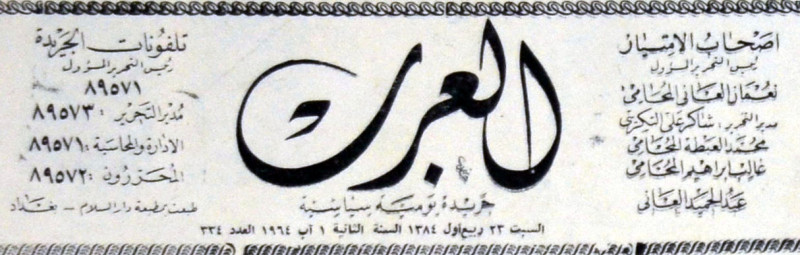 اصحاب الامتياز
رئيس التحرير المسؤول
نعمان العاني المحامي
مدير التحرير : شاكر علي التكريتي
محمد العبطة المحامي
غالب ابراهيم المحامي
عبد الحميد العاني
العرب
جريدة يومية سياسية
السبت ٢٣ ربيع اول ١٣٨٤ السنة الثانية ١ آب ١٩٦٤ العدد ٣٣٤
تلفونات الجريدة
رئيس التحرير المسؤول
٨٩٥٧١
مدير التحرير : ٨٩٥٧٣
الادارة والمحاسبة : ٨٩٥٧١
المحررون : ٨٩٥٧٢
طبعت بمطبعة دار السلام - بغداد